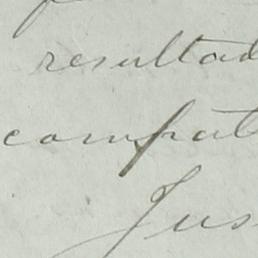 resultad
compat
Jus